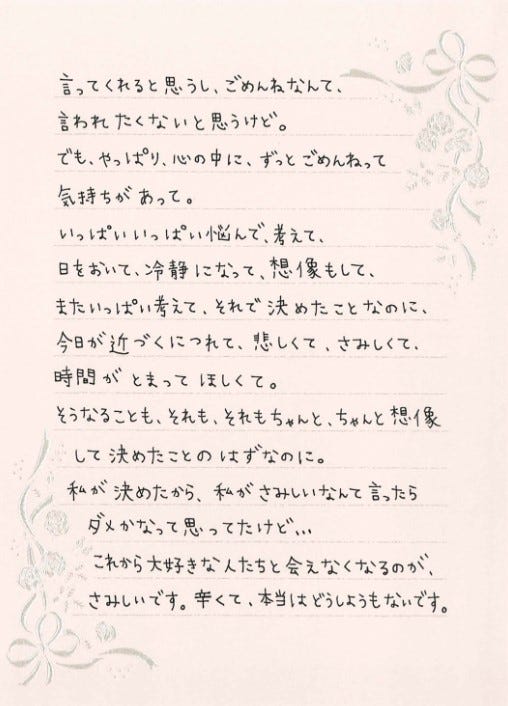 言ってくれると思うし、ごめんねなんて、
言われたくないと思うけど。
でも、やっぱり、心の中に、ずっとごめんねって
気持ちがあって。
いっぱいいっぱい悩んで、考えて、
日をおいて、冷静になって、想像もして、
またいっぱい考えて、それで決めたことなのに、
今日が近づくにつれて、悲しくて、さみしくて、
時間がとまってほしくて。
そうなることも、それも、それもちゃんと、ちゃんと想像
して決めたことのはずなのに。
私が決めたから、私がさみしいなんて言ったら
ダメかなって思ってたけど...
これから大好きな人たちと会えなくなるのが、
さみしいです。辛くて、本当はどうしようもないです。